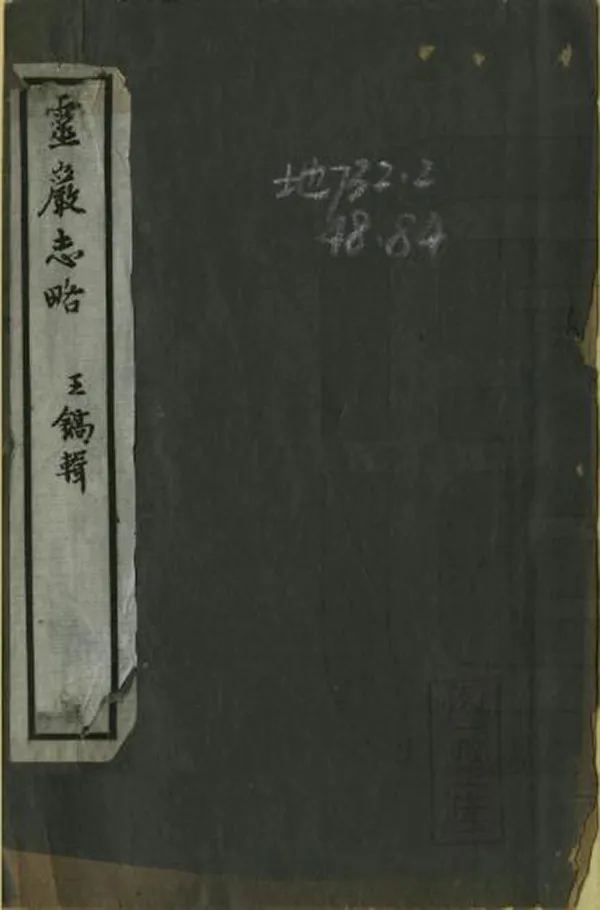 靈巖志略
王鎬輯
地732.2
48.84